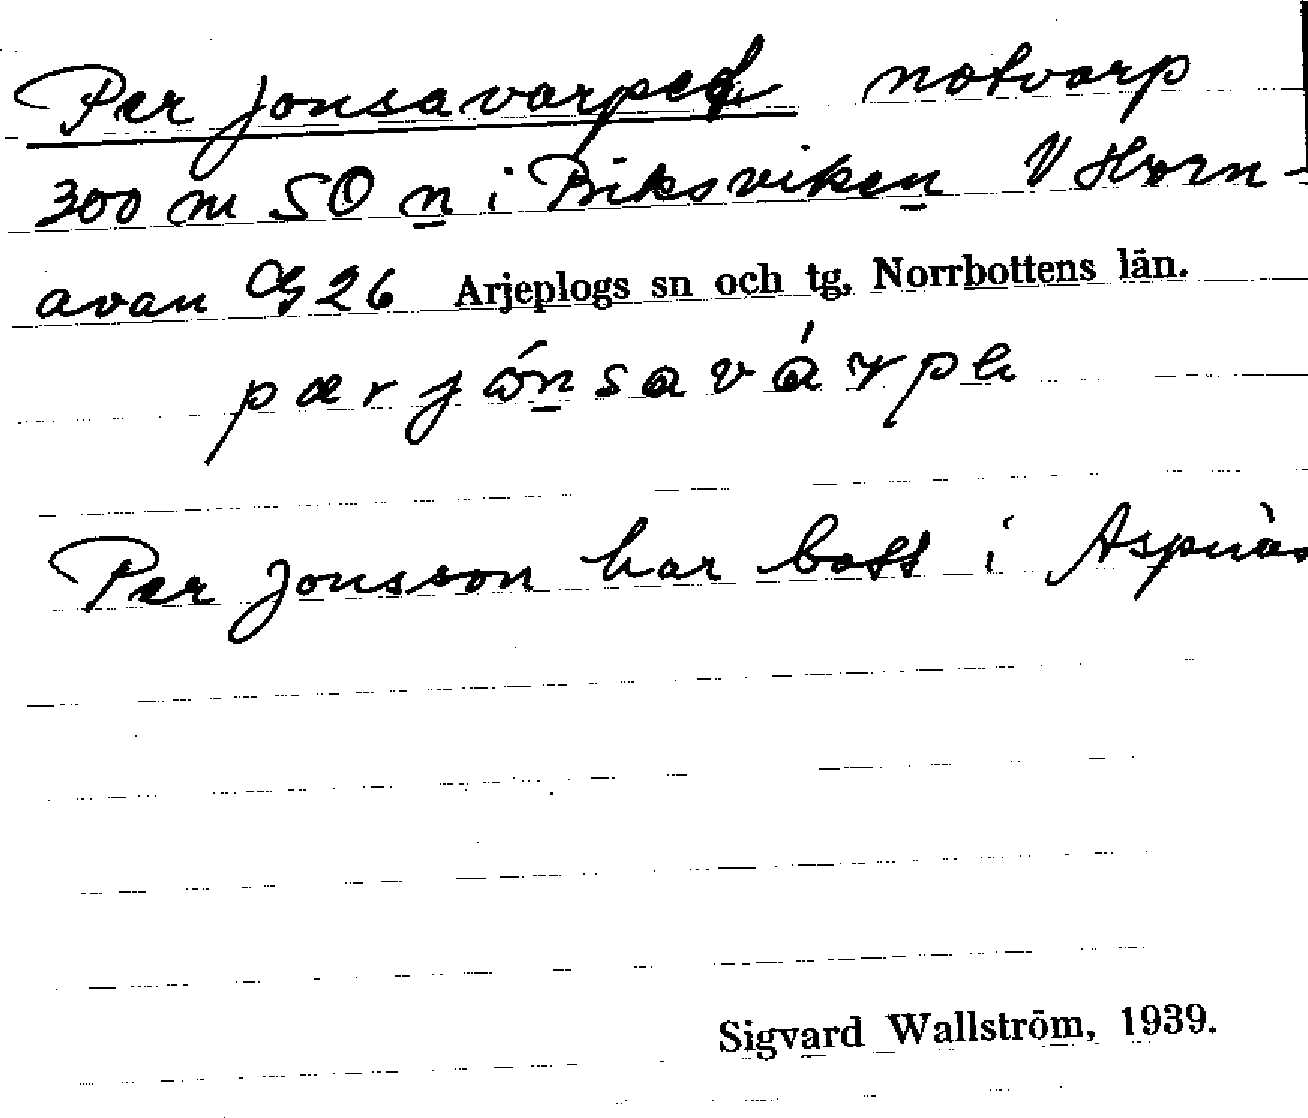 Per Jonsavarpet notvarp
300 m SO n i Biksviken V Horn-
avan G 26 Arjeplogs sn och tg, Norrbottens län.
Per Jonsson har bott i Aspnäs
Sigvard Wallström, 1939.